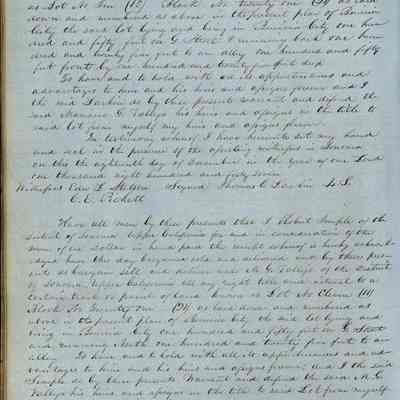 as Lot No Ten (10) Block No twenty one (21) as laid
down and numbered as above in the present plan of Benicia
City the said lot lying and being in Benicia City one hun
dred and fifty feet on G Street & running back one hun
dred and twenty five feet to an alley one hundred and fifty
feet front by one hundred and twenty five feet deep
To have and to hold with all its appertainances and
advantages to him and his heirs and assigns forever and I
the said Larkin do by these presents warrant and defend the
said Mariano G. Vallejo his heirs and assigns in the title to
said lot from myself my heirs and assigns forever
In testimony whereof I have hereunto set my hand
and seal in the presence of the attesting witnesses in Sonoma
on this the eighteenth day of December in the year of our Lord
one thousand eight hundred and forty seven
Witnesses Edw. L. Stetson Signed Thomas O. Larkin L.S.
C. E. Pickett
Know all men by these presents that I Robert Semple of the
District of Sonoma Upper California for and in consideration of the
sum of one Dollar in hand paid the receipt whereof is hereby acknowl
edged have this day bargained sold and delivered and by these pres
ents do bargain sell and deliver unto M. G. Vallejo of the District
of Sonoma Upper California all my right title and interest to a
certain tract or parcel of land known as Lot No Eleven (11)
Block No Twenty one (21) as laid down and numbered as
above in the present plan of Benicia City the said lot lying and
being in Benicia City one hundred and fifty feet on G Street
and running North one hundred and twenty five feet to an
alley To have and to hold with all its appertainances and ad
vantages to him and his heirs and assigns forever And I the said
Semple do by these presents Warrant and defend the said M. G.
Vallejo his heirs and assigns in the title to said Lot from myself